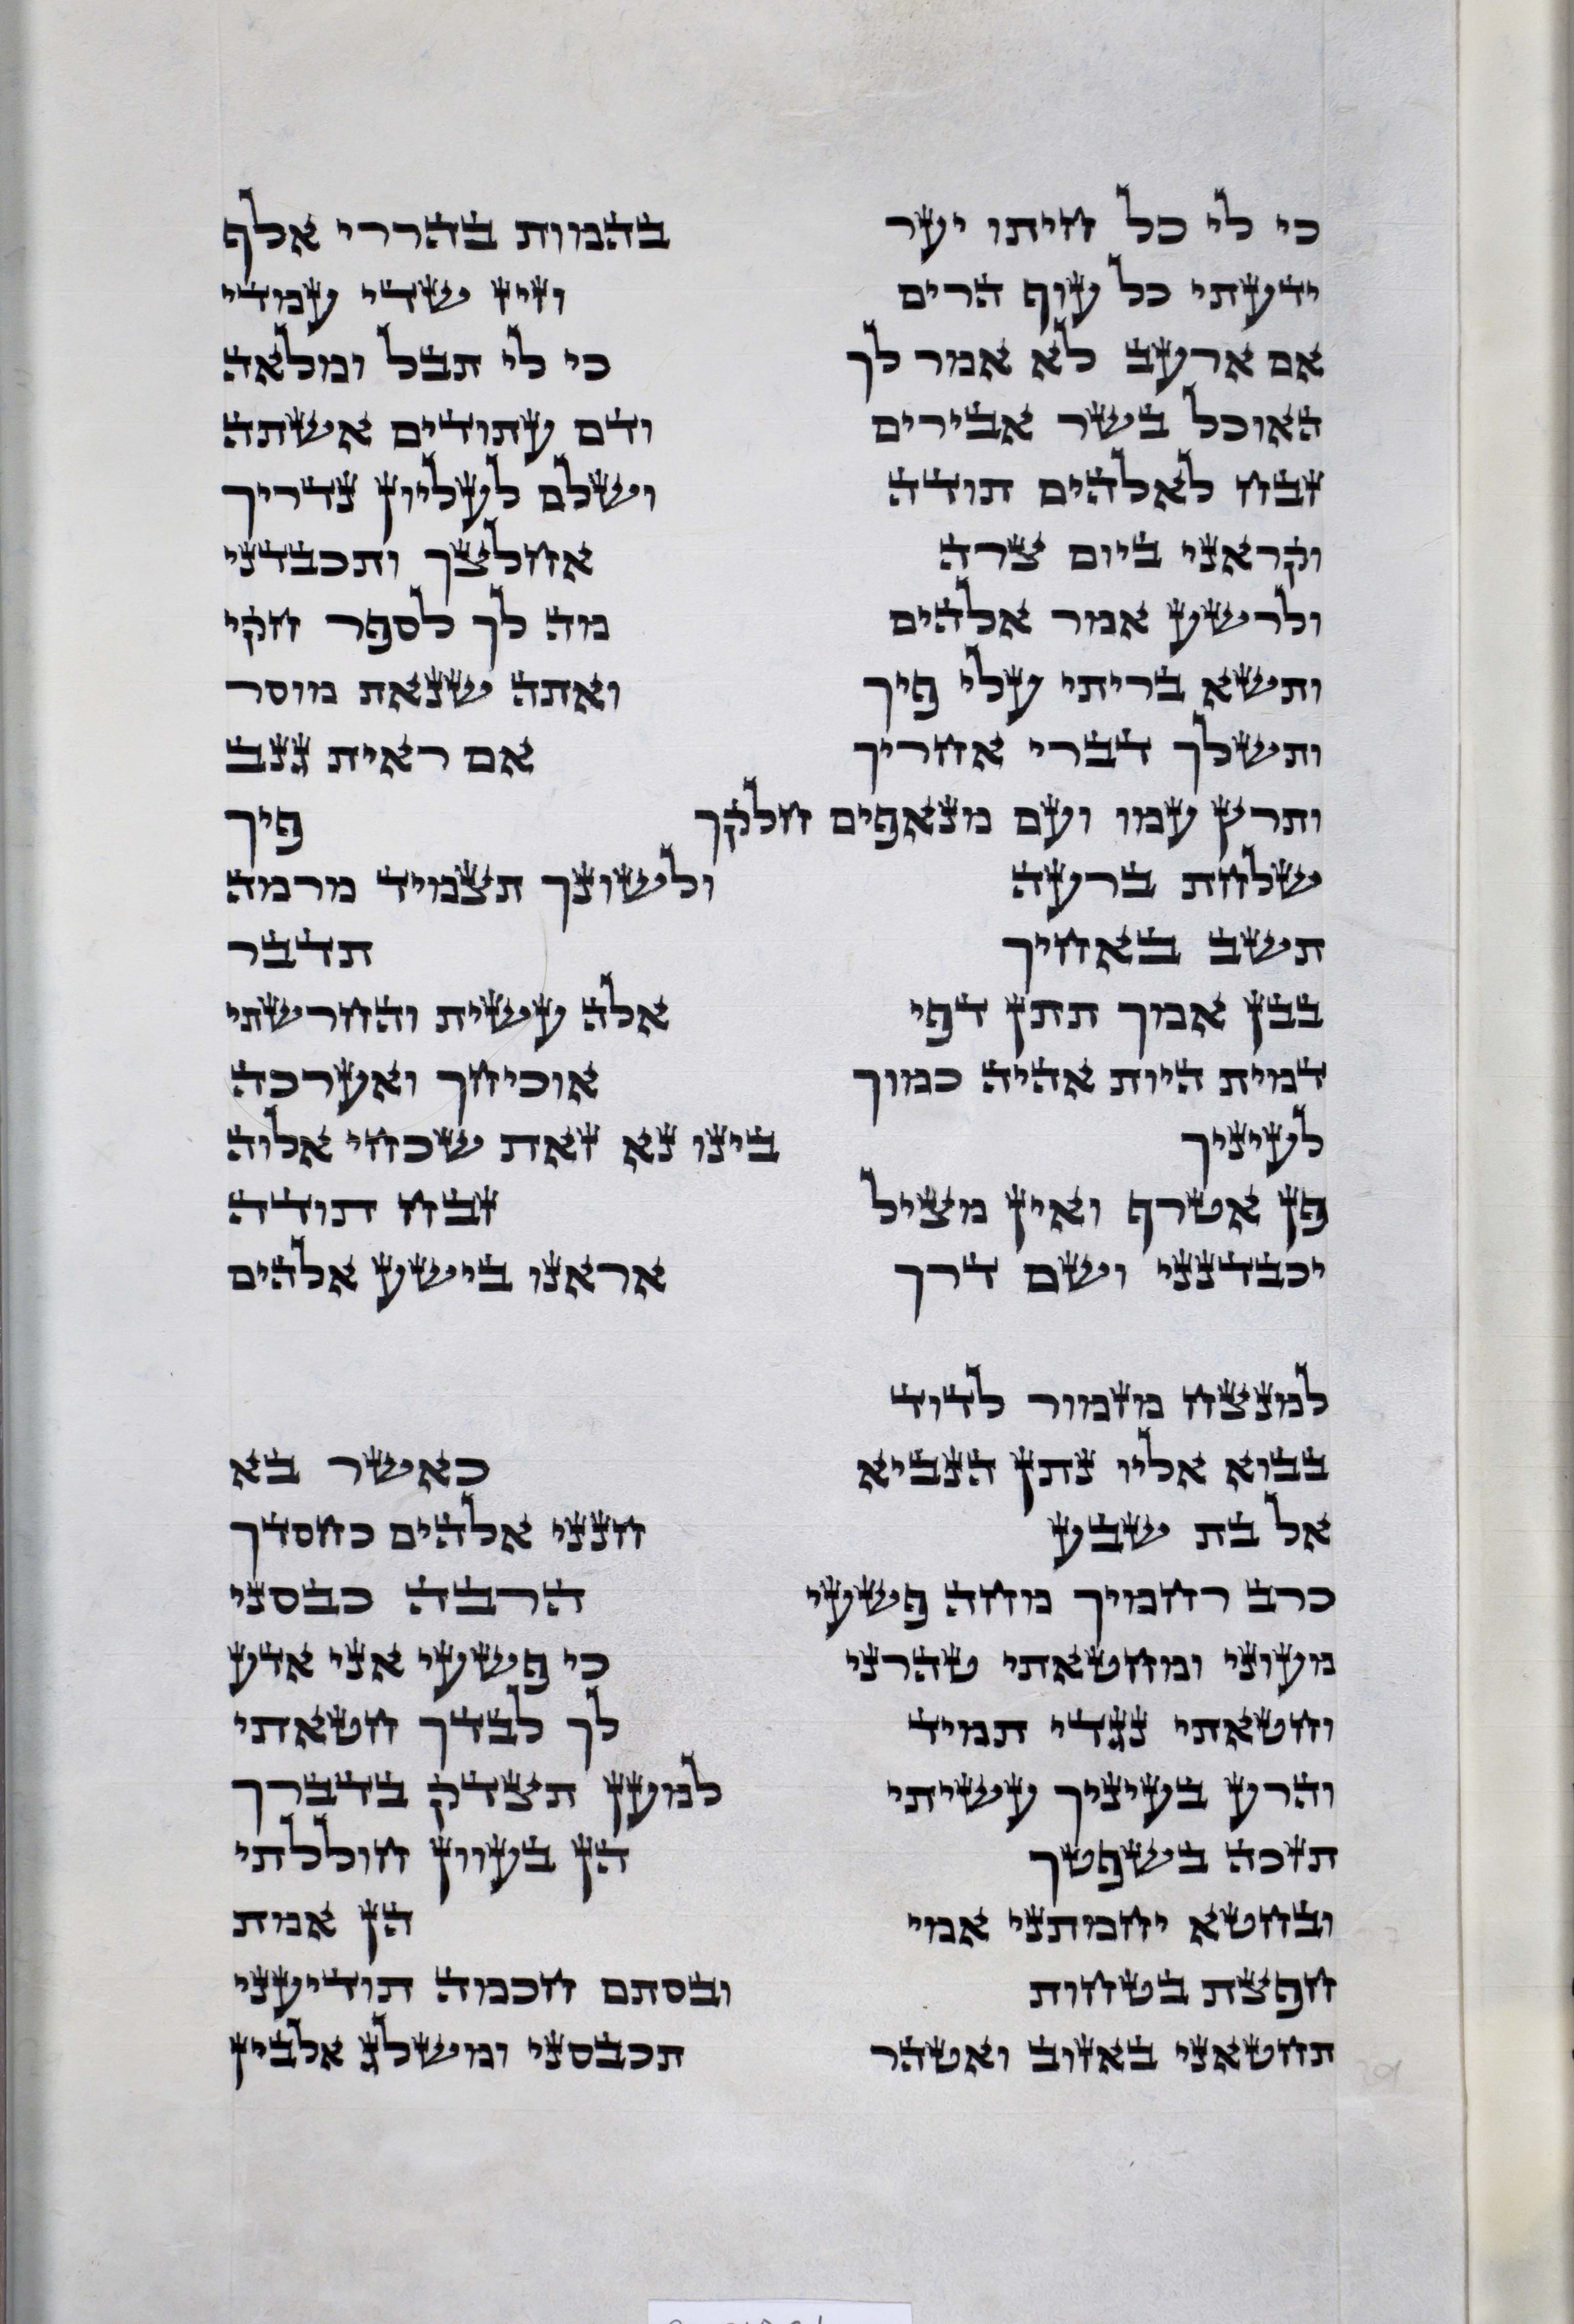 כי לי כל חיתו יער בהמות בהררי אלף
ידעתי כל עוף הרים וזיז שדי עמדי
אם ארעב לא אמר לך כי לי תבל ומלאה
האוכל בשר אבירים ודם עתודים אשתה
זבח לאלהים תודה ושלם לעליון נדריך
וקראני ביום צרה אחלצך ותכבדני
ולרשע אמר אלהים מה לך לספר חקי
ותשא בריתי עלי פיך ואתה שנאת מוסר
ותשלך דברי אחריך אם ראית גנב
ותרץ עמו ועם מנאפים חלקך פיך
שלחת ברעה ולשונך תצמיד מרמה
תשב באחיך תדבר
בבן אמך תתן דפי אלה עשית והחרשתי
דמית היות אהיה כמוך אוכיחך ואערכה
לעיניך בינו נא זאת שכחי אלוה
פן אטרף ואין מציל זבח תודה
יכבדנני ושם דרך אראנו בישע אלהים
למנצח מזמור לדוד
בבוא אליו נתן הנביא כאשר בא
אל בת שבע חנני אלהים כחסדך
כרב רחמיך מחה פשעי הרבה כבסני
מעוני ומחטאתי טהרני כי פשעי אני אדע
וחטאתי נגדי תמיד לך לבדך חטאתי
והרע בעיניך עשיתי למען תצדק בדברך
תזכה בשפטך הן בעוון חוללתי
ובחטא יחמתני אמי הן אמת
חפצת בטחות ובסתם חכמה תודיעני
תחטאני באזוב ואטהר תכבסני ומשלג אלבין